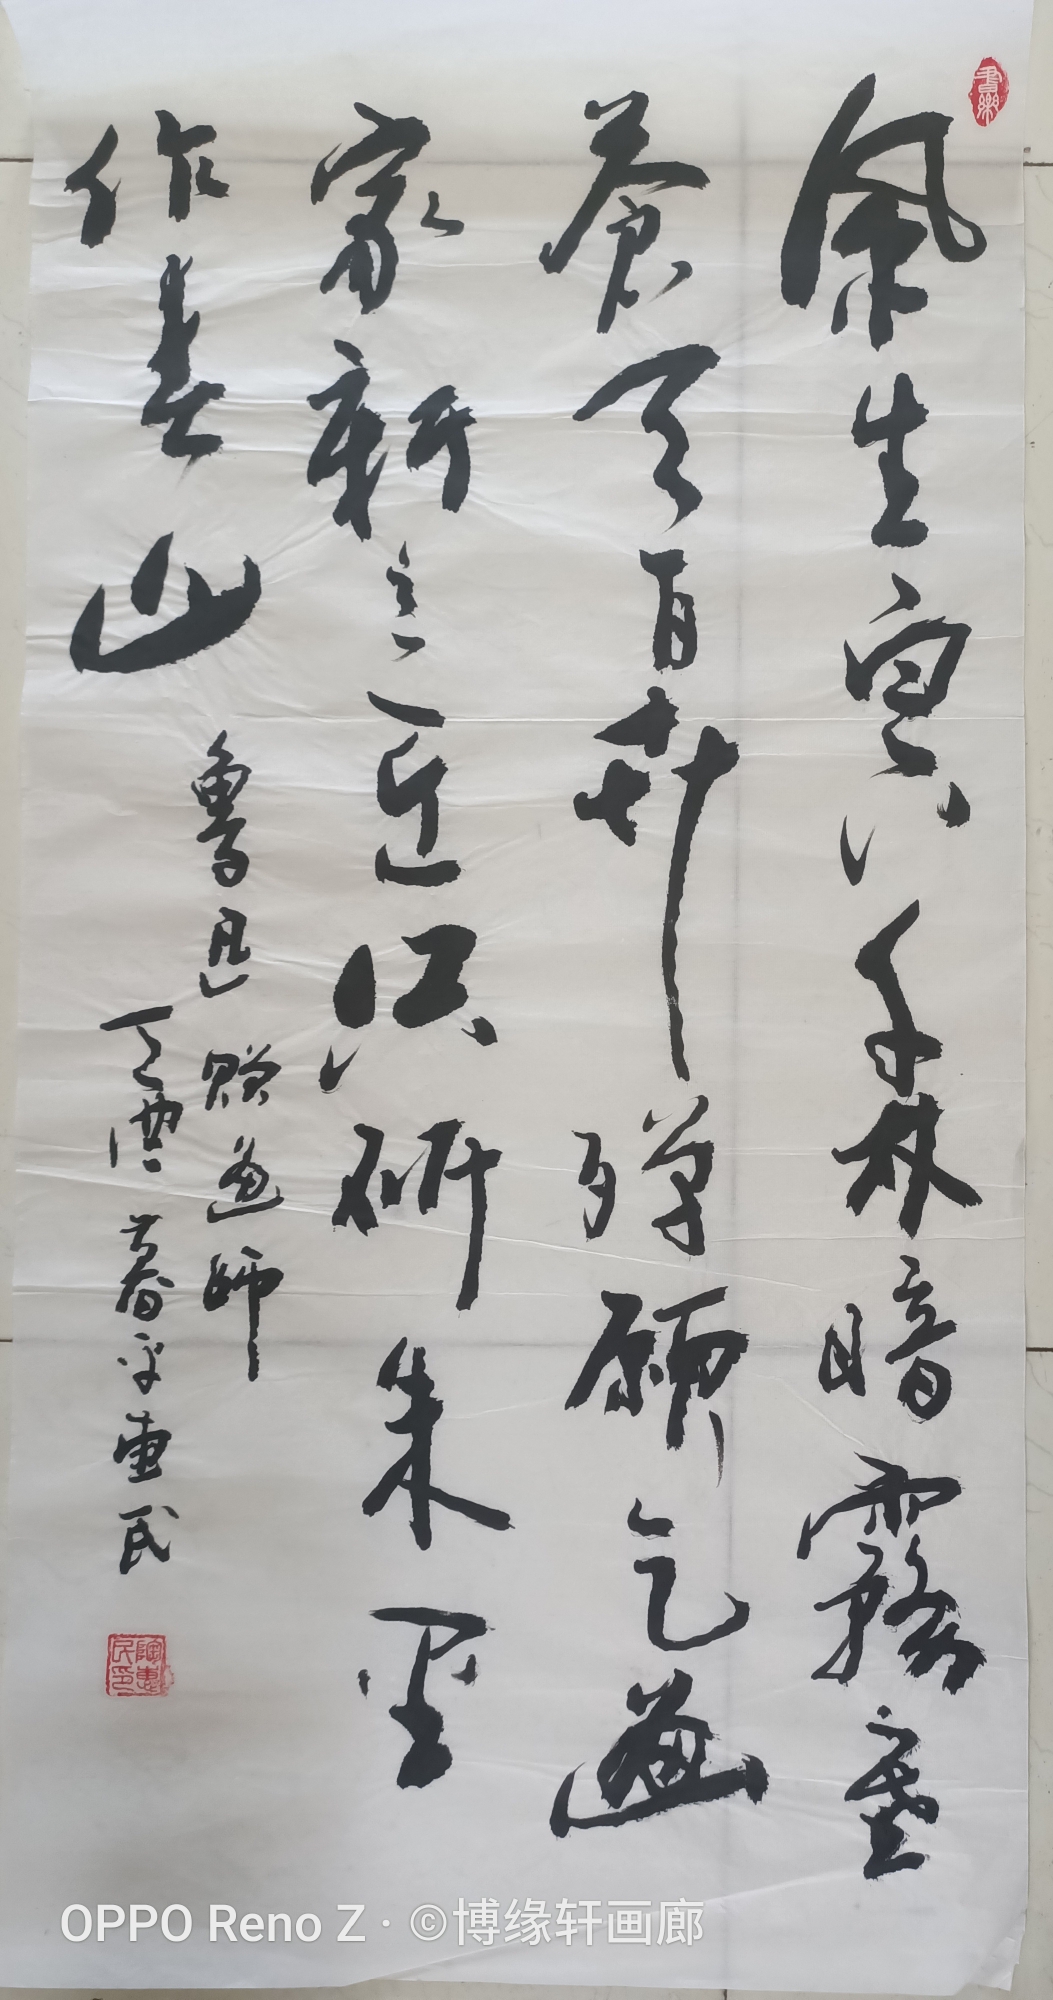 風生白下千林暗霧塞
蒼天百卉殫願乞畫
家新意匠只研朱墨
作春山
魯迅贈畫師
丁酉惠民
陶惠民印
OPPO Reno Z · ©博缘轩画廊